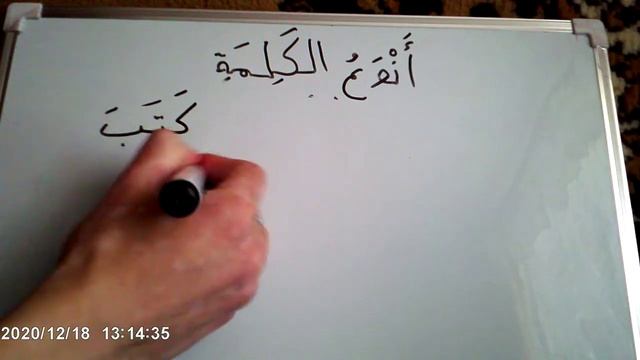 أَنْوَعُ الكَلِمَةِ
كَتَبَ
2020/12/18 13:14:35